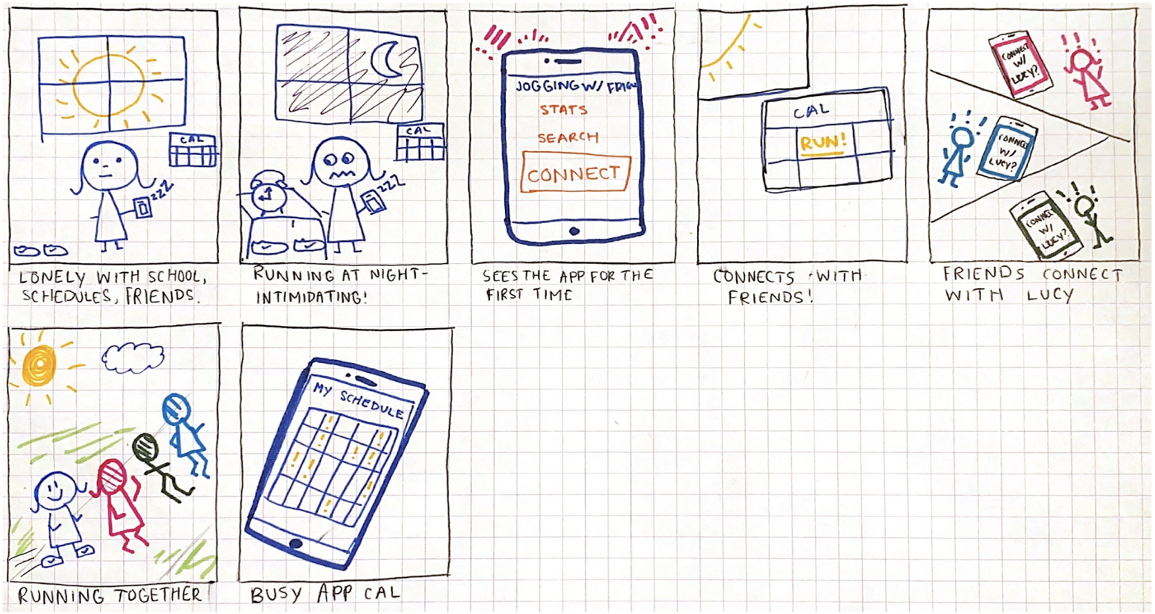 CAL
ZZZ
LONELY WITH SCHOOL,
SCHEDULES, FRIENDS.
CAL
ZZZ
RUNNING AT NIGHT-
INTIMIDATING!
JOGGING W/
STATS
SEARCH
CONNECT
SEES THE APP FOR THE
FIRST TIME
CAL
RUN!
CONNECTS WITH
FRIENDS!
CONNECT
W/
LUCY?
CONNECT
W/
LUCY?
CONNECT
W/
LUCY?
FRIENDS CONNECT
WITH LUCY
RUNNING TOGETHER
MY SCHEDULE
BUSY APP CAL